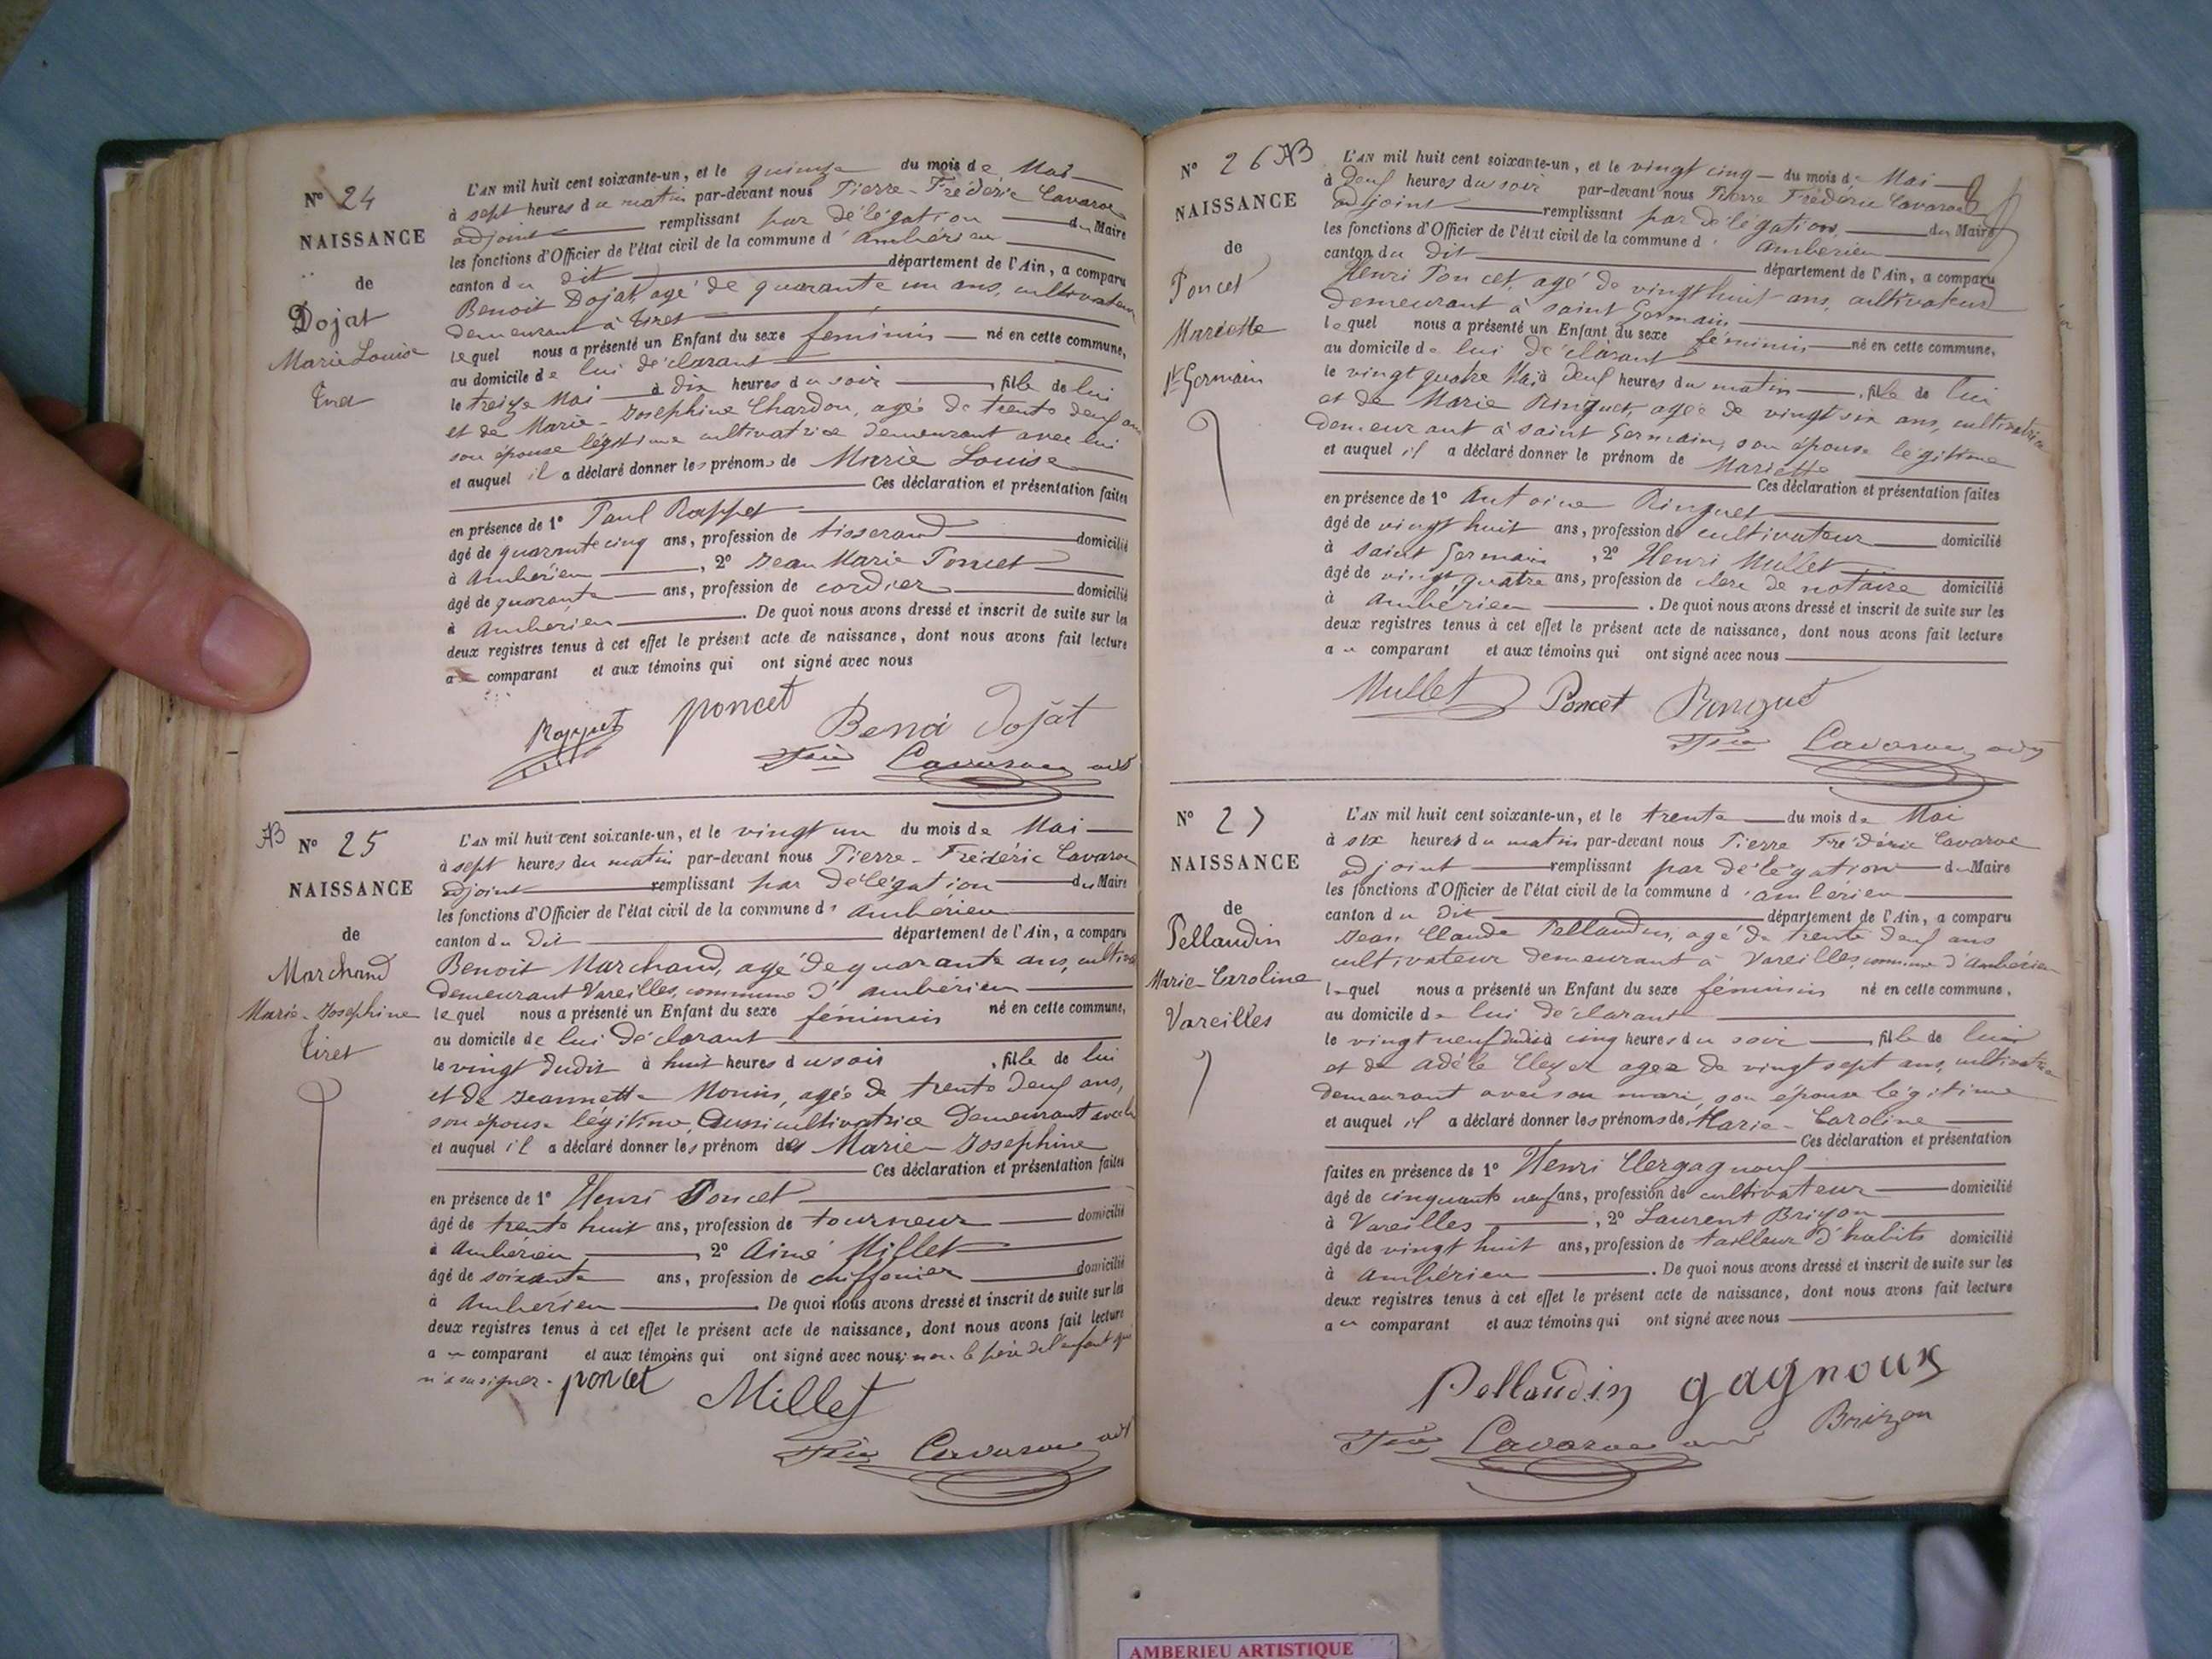 N° 24
NAISSANCE
de
Dojat
Marie Louise
Tiret
L'AN mil huit cent soixante-un, et le quinze du mois de Mai
à sept heures du matin par-devant nous Pierre-Frédéric Cavaroc
adjoint remplissant par délégation du Maire
les fonctions d'Officier de l'état civil de la commune d'Ambérieu
canton du dit département de l'Ain, a comparu
Benoit Dojat, agé de quarante un ans, cultivateur
demeurant à Tiret
lequel nous a présenté un Enfant du sexe féminin né en cette commune,
au domicile de lui déclarant
le treize Mai à dix heures du soir, fille de lui
et de Marie-Josephine Chardon, agée de trente deux ans
son épouse légitime cultivatrice demeurant avec lui
et auquel il a déclaré donner les prénoms de Marie Louise
Ces déclaration et présentation faites
en présence de 1° Paul Rappet
âgé de quarante cinq ans, profession de tisserand domicilié
à Ambérieu, 2° Jean Marie Poncet
âgé de quarante ans, profession de cordier domicilié
à Ambérieu. De quoi nous avons dressé et inscrit de suite sur les
deux registres tenus à cet effet le présent acte de naissance, dont nous avons fait lecture
au comparant et aux témoins qui ont signé avec nous
Rappet poncet Benoi Dojat
Fric Cavaroc adj
AB N° 25
NAISSANCE
de
Marchand
Marie-Josephine
Tiret
L'AN mil huit cent soixante-un, et le vingt un du mois de Mai
à sept heures du matin par-devant nous Pierre-Frédéric Cavaroc
adjoint remplissant par délégation du Maire
les fonctions d'Officier de l'état civil de la commune d'Ambérieu
canton du dit département de l'Ain, a comparu
Benoit Marchand, agé de quarante ans, cultiv
demeurant Vareilles, commune d'Ambérieu
lequel nous a présenté un Enfant du sexe féminin né en cette commune,
au domicile de lui déclarant
le vingt dudit à huit heures du soir, fille de lui
et de Jeannette Monin, agée de trente deux ans,
son épouse légitime, aussi cultivatrice demeurant avec lui
et auquel il a déclaré donner les prénom des Marie-Josephine
Ces déclaration et présentation faites
en présence de 1° Henri Poncet
âgé de trente huit ans, profession de tourneur domicilié
à Ambérieu, 2° Aimé Millet
âgé de soixante ans, profession de chiffonier domicilié
à Ambérieu. De quoi nous avons dressé et inscrit de suite sur les
deux registres tenus à cet effet le présent acte de naissance, dont nous avons fait lecture
au comparant et aux témoins qui ont signé avec nous; non le père de l'enfant qui
n'a su signer. poncet Millet
Fric Cavaroc adj
N° 26 AB
NAISSANCE
de
Poncet
Mariette
St Germain
L'AN mil huit cent soixante-un, et le vingt cinq du mois de Mai
à deux heures du soir par-devant nous Pierre Frédéric Cavaroc
adjoint remplissant par délégation du Maire
les fonctions d'Officier de l'état civil de la commune d'Ambérieu
canton du dit département de l'Ain, a comparu
Henri Poncet, agé de vingt huit ans, cultivateur
demeurant à saint Germain
lequel nous a présenté un Enfant du sexe féminin né en cette commune,
au domicile de lui déclarant
le vingt quatre Mai à deux heures du matin, fille de lui
et de Marie Ringuet, agée de vingt six ans, cultivatrice
demeurant à saint Germain, son épouse légitime
et auquel il a déclaré donner le prénom de Mariette
Ces déclaration et présentation faites
en présence de 1° Antoine Ringuet
âgé de vingt huit ans, profession de cultivateur domicilié
à saint Germain, 2° Henri Mullet
âgé de vingt quatre ans, profession de clerc de notaire domicilié
à Ambérieu. De quoi nous avons dressé et inscrit de suite sur les
deux registres tenus à cet effet le présent acte de naissance, dont nous avons fait lecture
au comparant et aux témoins qui ont signé avec nous
Mullet Poncet Ringuet
Fric Cavaroc adj
N° 27
NAISSANCE
de
Pellaudin
Marie-Caroline
Vareilles
L'AN mil huit cent soixante-un, et le trente du mois de Mai
à six heures du matin par-devant nous Pierre Frédéric Cavaroc
adjoint remplissant par délégation du Maire
les fonctions d'Officier de l'état civil de la commune d'Ambérieu
canton du dit département de l'Ain, a comparu
Jean Claude Pellaudin, agé de trente deux ans
cultivateur demeurant à Vareilles, commune d'Ambérieu
lequel nous a présenté un Enfant du sexe féminin né en cette commune,
au domicile de lui déclarant
le vingt neuf dudit à cinq heures du soir, fille de lui
et de Adèle Cleyet agee de vingt sept ans, cultivatrice
demeurant avec son mari, son épouse légitime
et auquel il a déclaré donner les prénoms de Marie-Caroline
Ces déclaration et présentation
faites en présence de 1° Henri Clergagnoux
âgé de cinquante neuf ans, profession de cultivateur domicilié
à Vareilles, 2° Laurent Brizon
âgé de vingt huit ans, profession de tailleur d'habits domicilié
à Ambérieu. De quoi nous avons dressé et inscrit de suite sur les
deux registres tenus à cet effet le présent acte de naissance, dont nous avons fait lecture
au comparant et aux témoins qui ont signé avec nous
Pellaudin gagnoux
Fric Cavaroc Brizon
AMBERIEU ARTISTIQUE